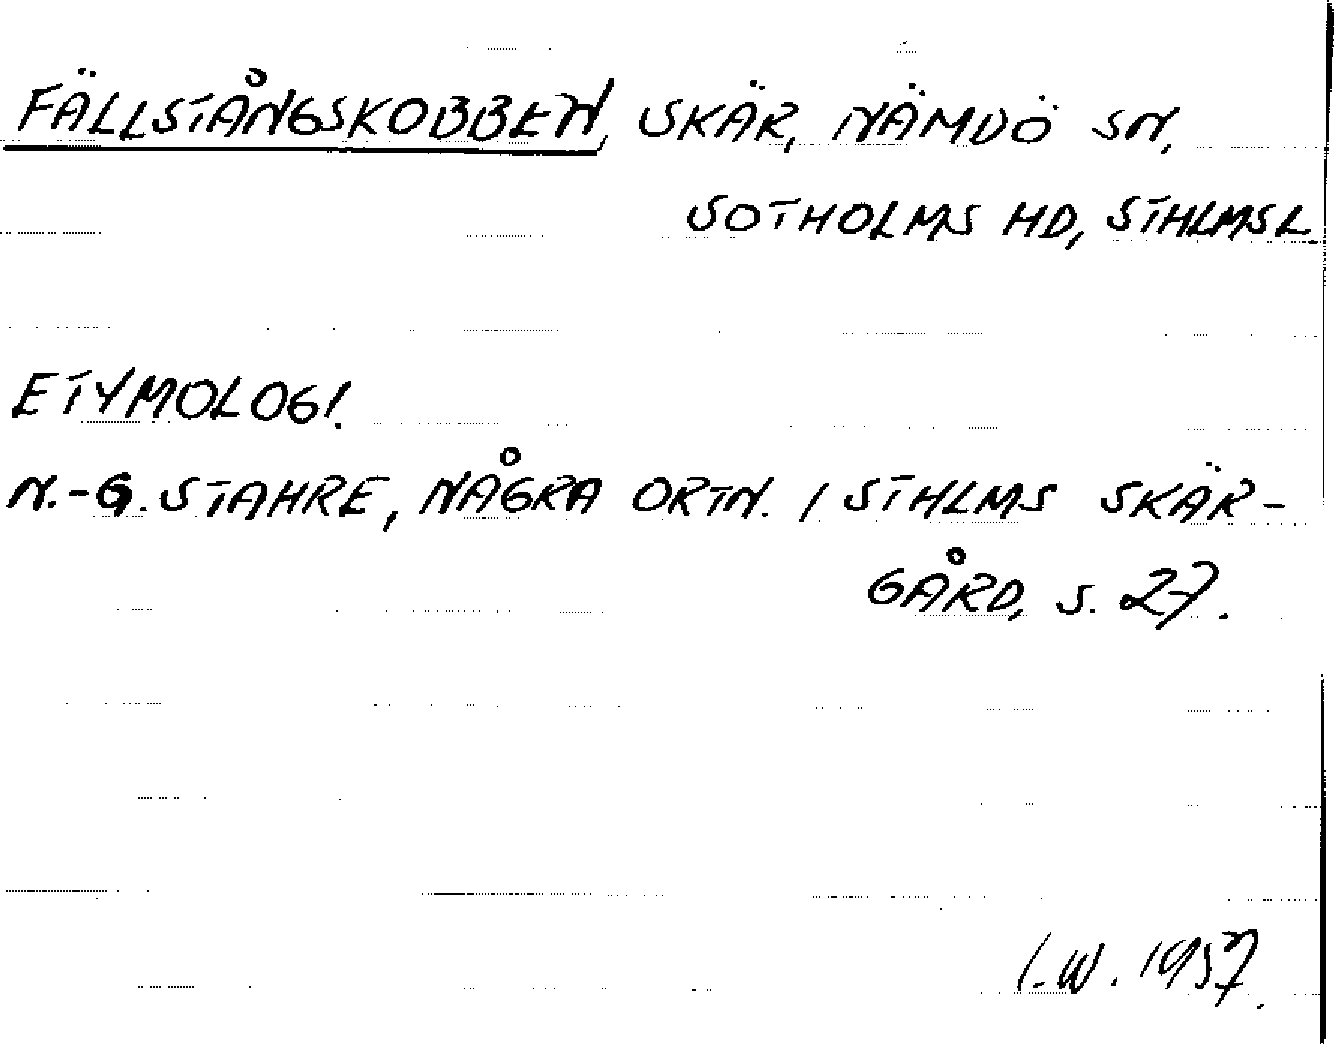 FÄLLSTÅNGSKOBBEN, SKÄR, NÄMDÖ SN,
SOTHOLMS HD, STHLMSL.
ETYMOLOGI.
N.-G. STAHRE, NÅGRA ORTN. I STHLMS SKÄR-
GÅRD, S. 27.
I.W. 1957.